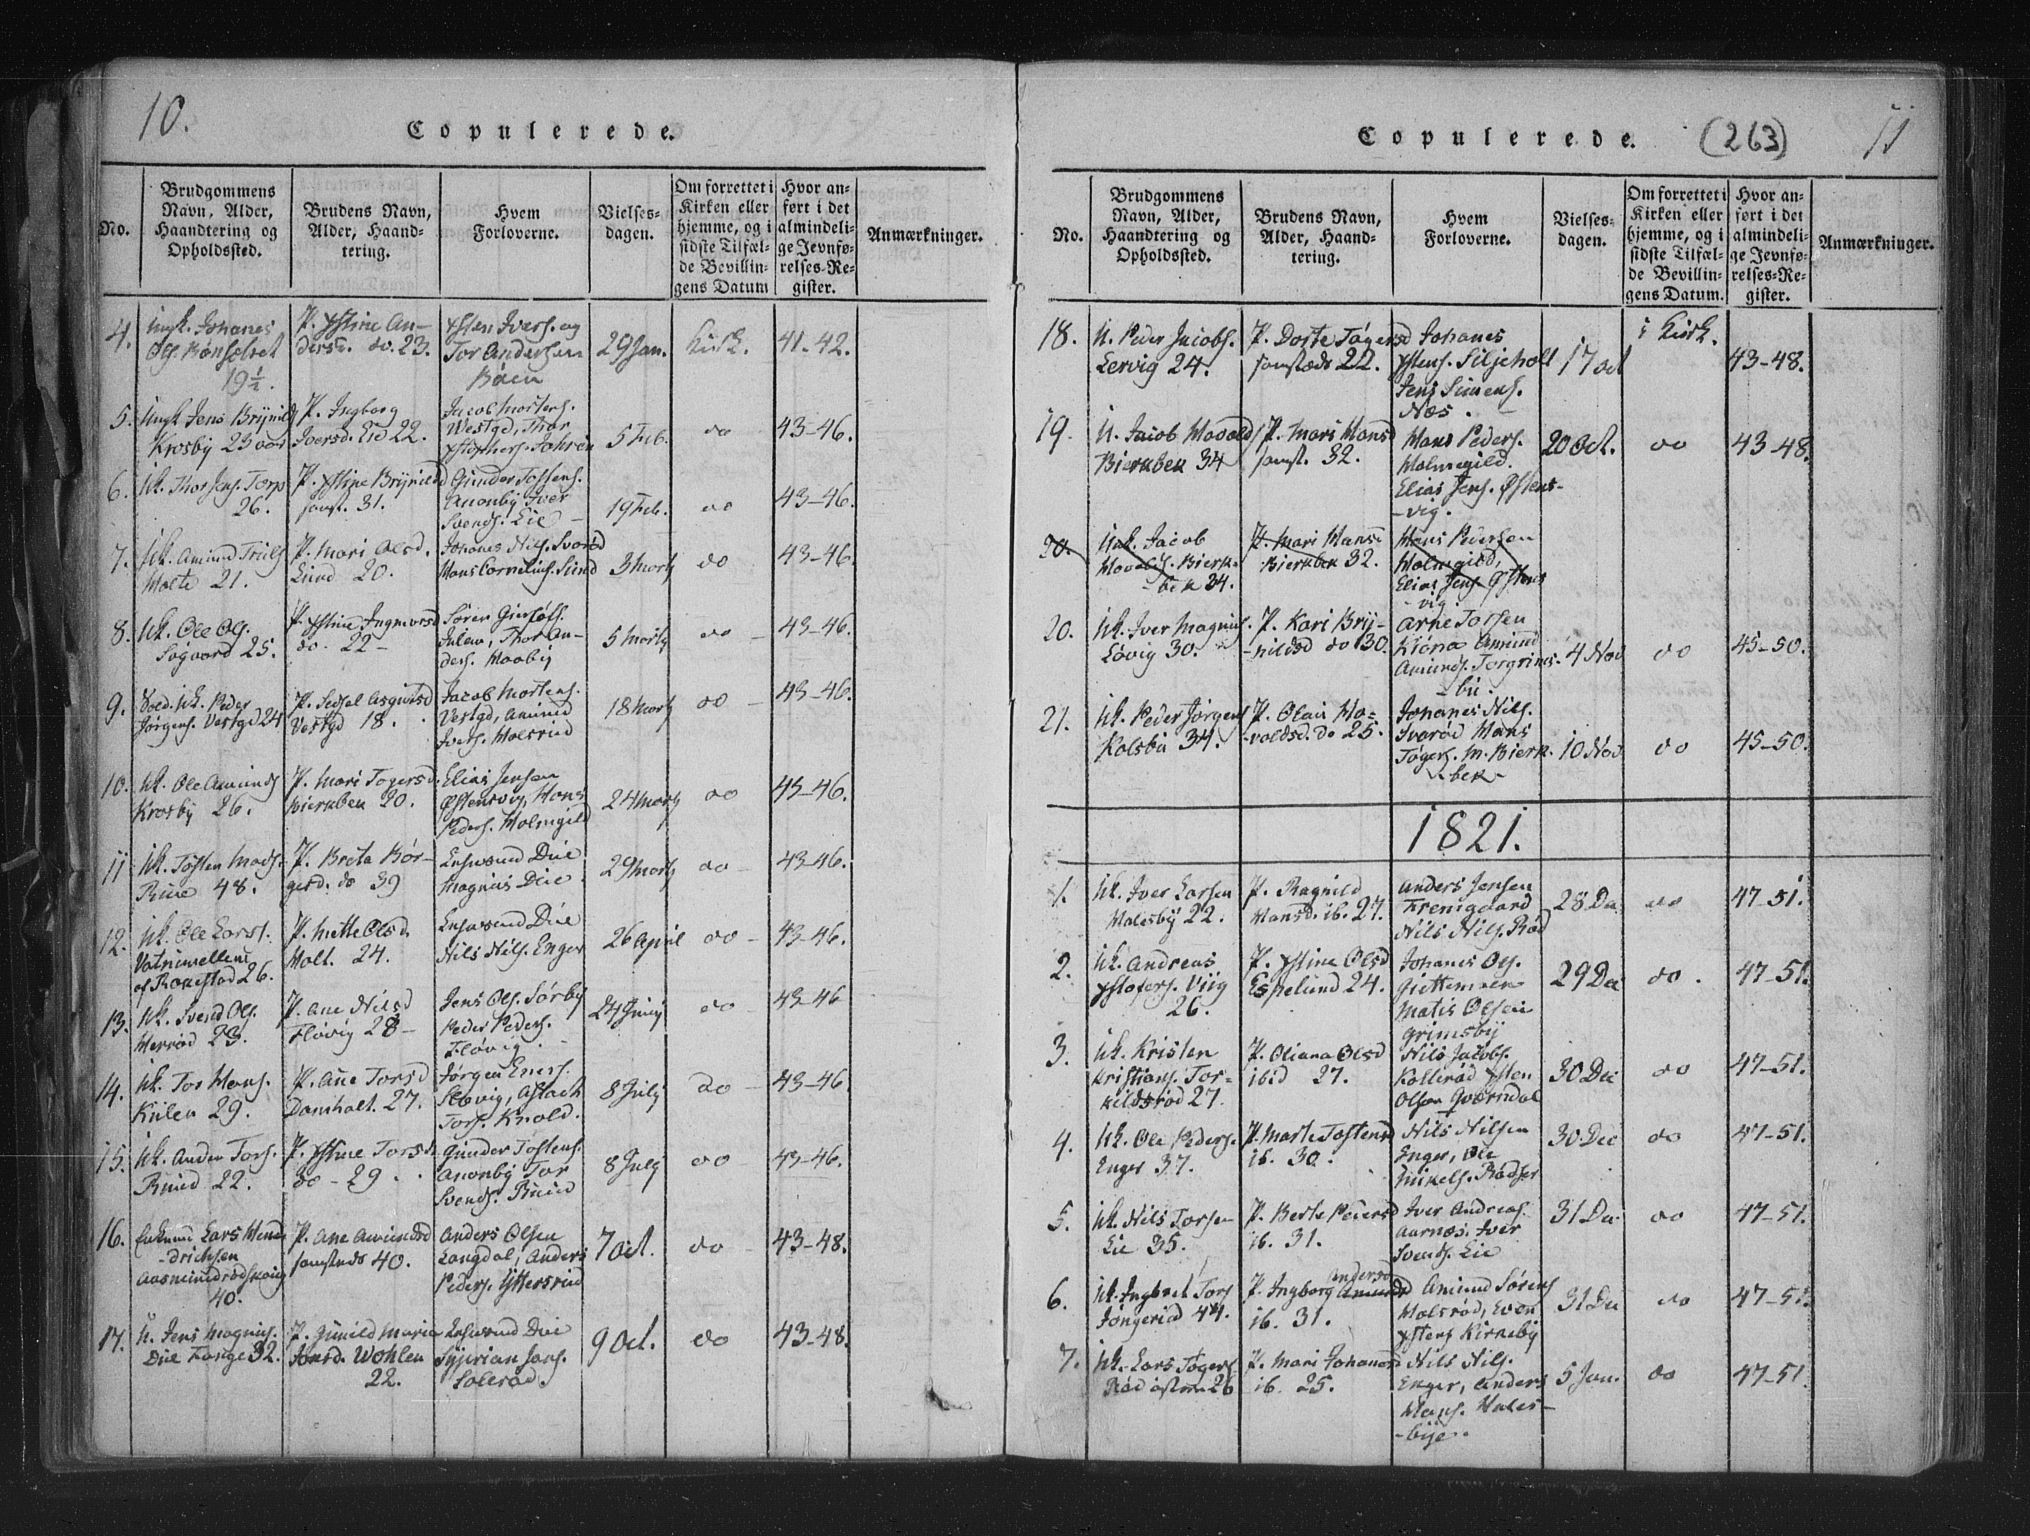 10.
Copulerede.
No.
Brudgommens
Navn, Alder,
Haandtering og
Opholdssted.
Brudens Navn,
Alder, Haand-
tering.
Hvem
Forloverne.
Vielses-
dagen.
Om forrettet i
Kirken eller
hjemme, og i
sidste Tilfæl-
de Bevillin-
gens Datum
Hvor an-
ført i det
almindeli-
ge Jevnfø-
relses-Re-
gister.
Anmærkninger.
4.
Ungk. Johanes
Ols. Rønseket
19½.
P. Xstine An-
dersd. do. 23.
Xsten Ivers. og
Tor Andersen
Böen
29 Jan.
Kirk.
41-42.
5.
Ungk Jens Brÿnild
Krosby 23 aar
P. Ingborg
Iversd. Eid 22.
Jacob Mortens.
Westgd, Thor
Xstophers. Johren
5 Feb.
do
43-46.
6.
Uk. Thor Jens. Torp
26.
P. Xstine Brÿnild
samst. 31.
Gunder Tostens.
Anonbÿ Iver
Svends. Lie
19 Feb.
do
43-46.
7.
Uk. Amund Truls
Holte 21.
P. Mari Olsd.
Lund 20.
Johanes Nils. Svarød
Hans Cornelius. Lund
3 Marts
do
43-46.
8.
Uk. Ole Ols.
Sogaard 25.
P. Xstine Ingvarsd
do. 22 -
Sören
Thor An-
ders. Haabÿ
5 Marts
do
43-46.
9.
Sold. Uk. Peder
Jørgens. Vestgd 24
P. Sidsel Asgutsd
Vestgd 18.
Jacob Mortens.
Vestgd, Amund
Syvers. Holsrud
18 Marts
do
43-46.
10.
Uk. Ole Amunds
Krosby 26.
P. Mari Togersd.
Bierkbek 20.
Elias Jensen
Østensvig, Hans
Peders. Holmgild
24 Marts
do
43-46.
11
Uk. Tosten Mads.
Rue 48.
P. Breta Bör-
gesd. do 39
Ensv. Due
Magnus Due
29 Marts
do
43-46.
12.
Uk. Ole Lars.
af Rokestad 26.
P. Mette Olsd
Holt. 24.
Due
Nils Nils. Enger
26 April
do
43-46.
13.
Uk. Svend Ols.
Herrød 23.
P. Ane Nilsd
Fløvig 28 -
Jens Ols. Sørby
Peder Peders.
Fløvig.
24 Junÿ
do
43-46
14.
Uk. Tor Hans.
Kiilen 29.
P. Ane Torsd
Damholt. 27.
Jørgen Eners.
Slevig, Aslach
Tors. Knold.
8 Julÿ
do
43-46
15.
Uk. Ander Tors.
Ruud 22.
P. Xstine Torsd
do - 29.
Gunder Tostens.
Anonbÿ Tor
Svends. Ruud
8 Julÿ
do
43-46.
16.
Enkem. Lars Hen-
drichsen
Aasmundrødskovig
40.
P. Ane Amundsd
samsteds 40.
Anders Olsen
Langdal, Anders
Peders. Ÿttersrud
7 Oct.
do
43-48.
17.
U. Jens Magnus.
Due Tange 32.
P. Gunild Maria
Jonsd. Wohlen
22.
Due
Syverian Jans.
Solerød.
9 Oct.
do
43-48.
11
Copulerede.
(263)
No.
Brudgommens
Navn, Alder,
Haandtering og
Opholdssted.
Brudens Navn,
Alder, Haand-
tering.
Hvem
Forloverne.
Vielses-
dagen.
Om forrettet i
Kirken eller
hjemme, og i
sidste Tilfæl-
de Bevillin-
gens Datum.
Hvor an-
ført i det
almindeli-
ge Jevnfø-
relses-Re-
gister.
Anmærkninger.
18.
U. Peder Jacobs.
Lervig 24.
P. Dorte Tøgersd
samsteds 22.
Johanes
Xstens. Siljeholt
Jens Simens.
Næs.
17 Oct
i Kirk.
43-48.
19.
U. Jacob Hovald
Bierkbek 34
P. Mari Hansd
samst. 32.
Hans Peders.
Holmegild.
Elias Jens. Østens-
vig.
20 Oct.
do
43-48.
20.
Unk. Jacob
Hovalds. Bierk-
bek 34.
P. Mari Hansd
Bierkbek 32.
Hans Pedersen
Holmgild,
Elias Jens. Østens
vig.
20.
Uk. Iver Magnus.
Løvig 30.
P. Kari Brÿ-
nildsd do 30.
Arne Torsen
Kiønø Amund
Amunds. Torgrims-
bü.
4 Nov
do
45-50.
21.
Uk. Peder Jörgens
Kolsbü 34.
P. Olau Ho-
valdsd. do 25.
Johanes Nils.
Svarød Hans
Tøgers. M. Bierk-
bek
10 Nov
do
45-50.
1821.
1.
Uk. Iver Larsen
Halesbÿ 22.
P. Ragnild
Hansd. ib. 27.
Anders Jensen
Fremgaard
Nils Nils. Rød
28 De
do
47-51.
2.
Uk. Andreas
Xstofers. Viig
26.
P. Xstine Olsd
Espelund 24.
Johanes Ols.
Guttemoen
Matis Olsen
Grimsbÿ
29 De
do.
47-51.
3.
Uk. Kristen
Kristians. Tor-
kildsrød 27.
P. Oliana Olsd
ibid 27.
Nils Jacobs.
Kollerød Xsten
Olsen Qværndal
30 De
do
47-51.
4.
Uk. Ole Peders.
Enger 37.
P. Marte Tostensd
ib. 30.
Nils Nilsen
Enger, Ole
Mikels. Rødser
30 Dec
do
47-51.
5.
Uk. Nils Torsen
Lie 35.
P. Berte Pedersd
ib. 31.
Iver Andreas.
Aarnæs. Iver
Svends. Lie
31 De
do
47-51.
6.
Uk. Ingbret Tors
Jöngerød 44.
P. Ingborg Andersd Amundsd
ib. 31.
Amund Sørens
Holsrød, Even
Xstens Kirkebÿ
31 De
do
47-51.
7.
Uk. Lars Tøgers
Rød østre 26
P. Mari Johanesd
ib. 25.
Nils Nils.
Enger, Anders
Hans. Hales-
bÿe.
5 Jan.
do
47-51.